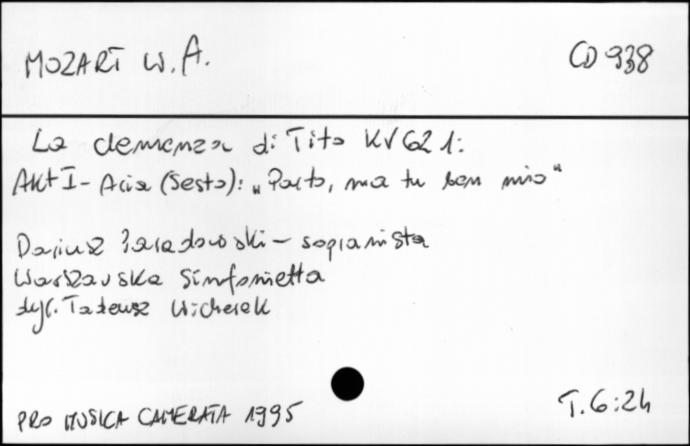 MOZART W.A.
CD 938
La clemenza di Tito KV 621:
AKT I - Aria (Sesto): „Parto, ma tu ben mio"
Dariusz Paradowski - sopranista
Warszawska Sinfonietta
dyr. Tadeusz Wicherek
PRO MUSICA CAMERATA 1995
T. 6:24